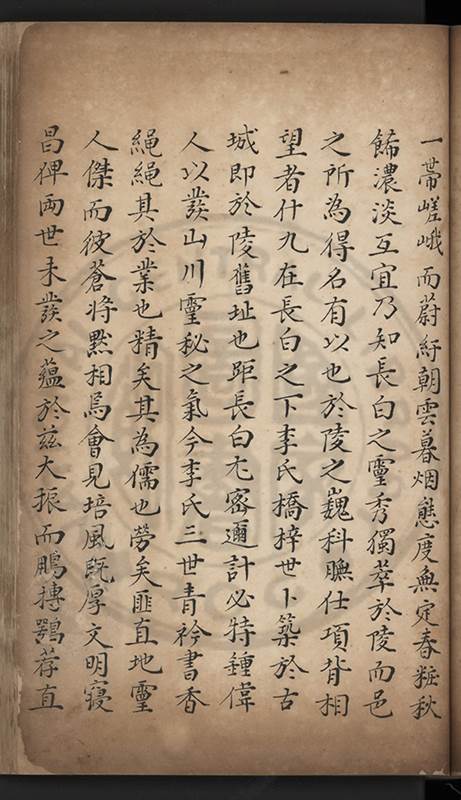 一帶嵯峨而蔚紆朝雲暮烟態度無定春粧秋
餙濃淡互宜乃知長白之靈秀獨萃於陵而邑
之所為得名有以也於陵之巍科膴仕項背相
望者什九在長白之下李氏橋梓世卜築於古
城即於陵舊址也距長白尤密邇計必特鍾偉
人以發山川靈秘之氣今李氏三世青衿書香
繩繩其於業也精矣其為儒也勞矣匪直地靈
人傑而彼蒼將黙相焉會見培風既厚文明寖
昌俾兩世未發之蘊於兹大振而鵬摶鶚荐直